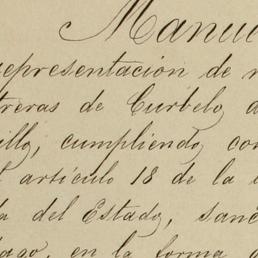 Manue
representación de
treras de Curbelo
illo, cumpliendo con
artículo 18 de la
del Estado, sanc
en la forma